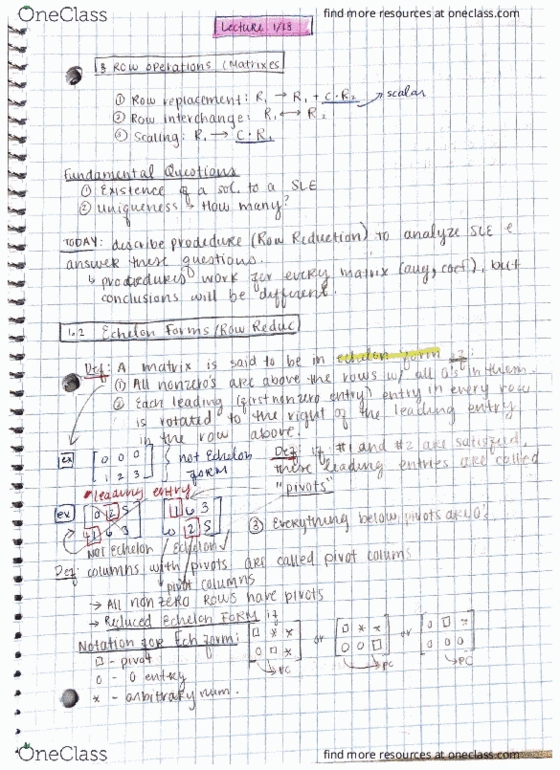 OneClass
find more resources at oneclass.com
Lecture 1/13
3 ROW OPERATIONS (Matrixes
① Row replacement: R₁ → R₁ + C·R₂ → scalar
② Row interchange: R₁ ↔ R₂
③ Scaling: R₁ → C·R₁
Fundamental Questions
① Existence of a sol. to a SLE
② uniqueness → How many?
TODAY: describe prodedure (Row Reduction) to analyze SLE &
answer these questions.
↳ prodedures work for every matrix (aug, coef), but
conclusions will be different.
1.2 Echelon Forms/Row Reduc
Def: A matrix is said to be in echelon form if:
① All nonzero's are above the rows w/ all 0's in them.
② Each leading (first nonzero entry) entry in every row
is rotated to the right of the leading entry
in the row above.
ex [0 0 0
1 2 3] } not Echelon FORM
Def: if #1 and #2 are satisfied,
these leading entries are called
"pivots"
leading entry
ex [0 2 5
4 6 3]
[1 6 3
0 2 5]
NOT Echelon Echelon ✓
③ Everything below pivots are 0's
Def: columns with pivots are called pivot colums
pivot columns
→ All nonzero rows have pivots
→ Reduced Echelon FORM if
Notation for Ech form:
[□ * *
0 □ *] or [□ * *
0 0 □] or [0 □ *
0 0 0]
→PC →PC →PC
□ - pivot
0 - 0 entry
* - arbitrary num.
OneClass
find more resources at oneclass.com